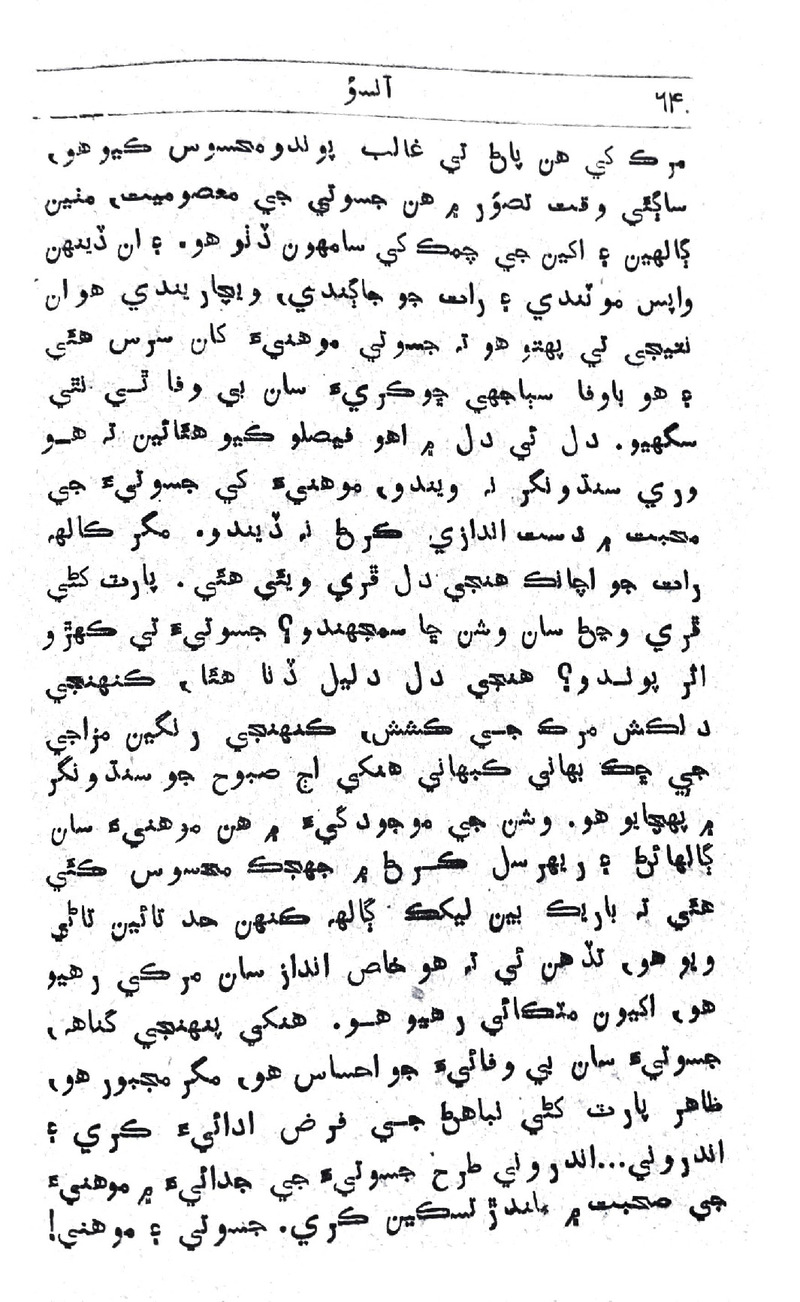 ۶۴. آلسؤ
مرڪ کي هن پاڻ تي غالب پوندو محسوس ڪيو هو،
ساڳئي وقت تصوُر ۾ هن جسوتي جي معصوميت، منين
ڳالهين ۽ اکين جي چمڪ کي سامهون ڏٺو هو. ۽ ان ڏينهن
واپس موٽندي ۽ رات جو جاڳندي، ويچاريندي هو ان
نتيجي تي پهتو هو ته جسوتي موهنيءَ کان سرس هئي
۽ هو باوفا سٻاجهي ڇوڪريءَ سان بي وفا ٿي نٿي
سگهيو. دل ئي دل ۾ اهو فيصلو ڪيو هئائين ته هو
وري سنڌونگر نه ويندو، موهنيءَ کي جسوتيءَ جي
محبت ۾ دست اندازي ڪرڻ نه ڏيندو. مگر ڪالهه
رات جو اچانڪ هنجي دل ڦري ويئي هئي. پارت کڻي
ڦري وڃڻ سان وشن ڇا سمجهندو؟ جسوتيءَ تي ڪهڙو
اثر پوندو؟ هنجي دل دليل ڏنا هئا، ڪنهنجي
دلڪش مرڪ جي ڪشش، ڪنهنجي رنگين مزاجي
جي ڇڪ بهاني ڪبهاني هنکي اڄ صبوح جو سنڌونگر
۾ پهچايو هو. وشن جي موجودگيءَ ۾ هن موهنيءَ سان
ڳالهائڻ ۽ ريهرسل ڪرڻ ۾ جهجڪ محسوس ڪئي
هئي ته باريڪ بين ليکڪ ڳالهه ڪنهن حد تائين تاڻي
ويو هو، تڏهن ئي ته هو خاص انداز سان مرڪي رهيو
هو، اکيون مٽڪائي رهيو هو. هنکي پنهنجي گناهه،
جسوتيءَ سان بي وفائيءَ جو احساس هو، مگر مجبور هو،
ظاهر پارت کڻي نباهڻ جي فرض ادائيءَ ڪري ۽
اندروني...اندروني طرح جسوتيءَ جي جدائيءَ ۾ موهنيءَ
جي صحبت ۾ تسڪين ڪري. جسوتي ۽ موهني!